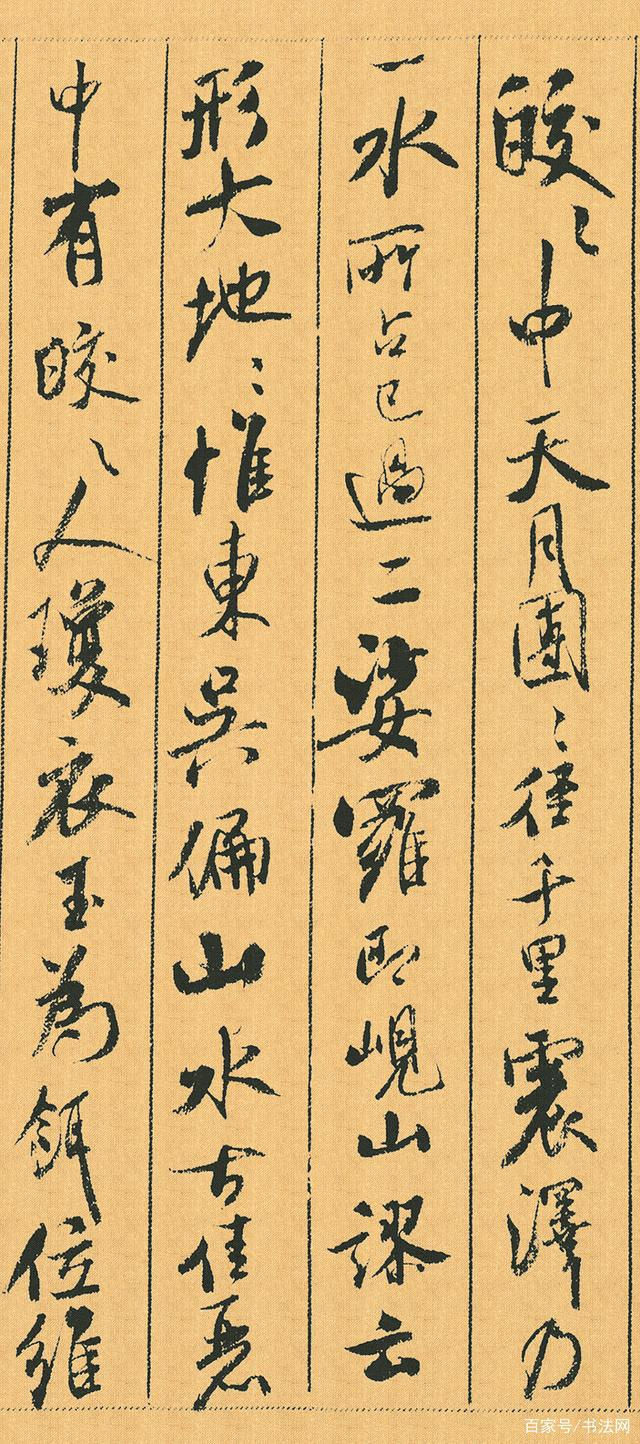 皎〻中天月團〻徑千里震澤乃
一水所占已過二娑羅即峴山謬云
形大地〻惟東吳偏山水古佳麗
中有皎〻人瓊衣玉為餌位維
百家号/书法网